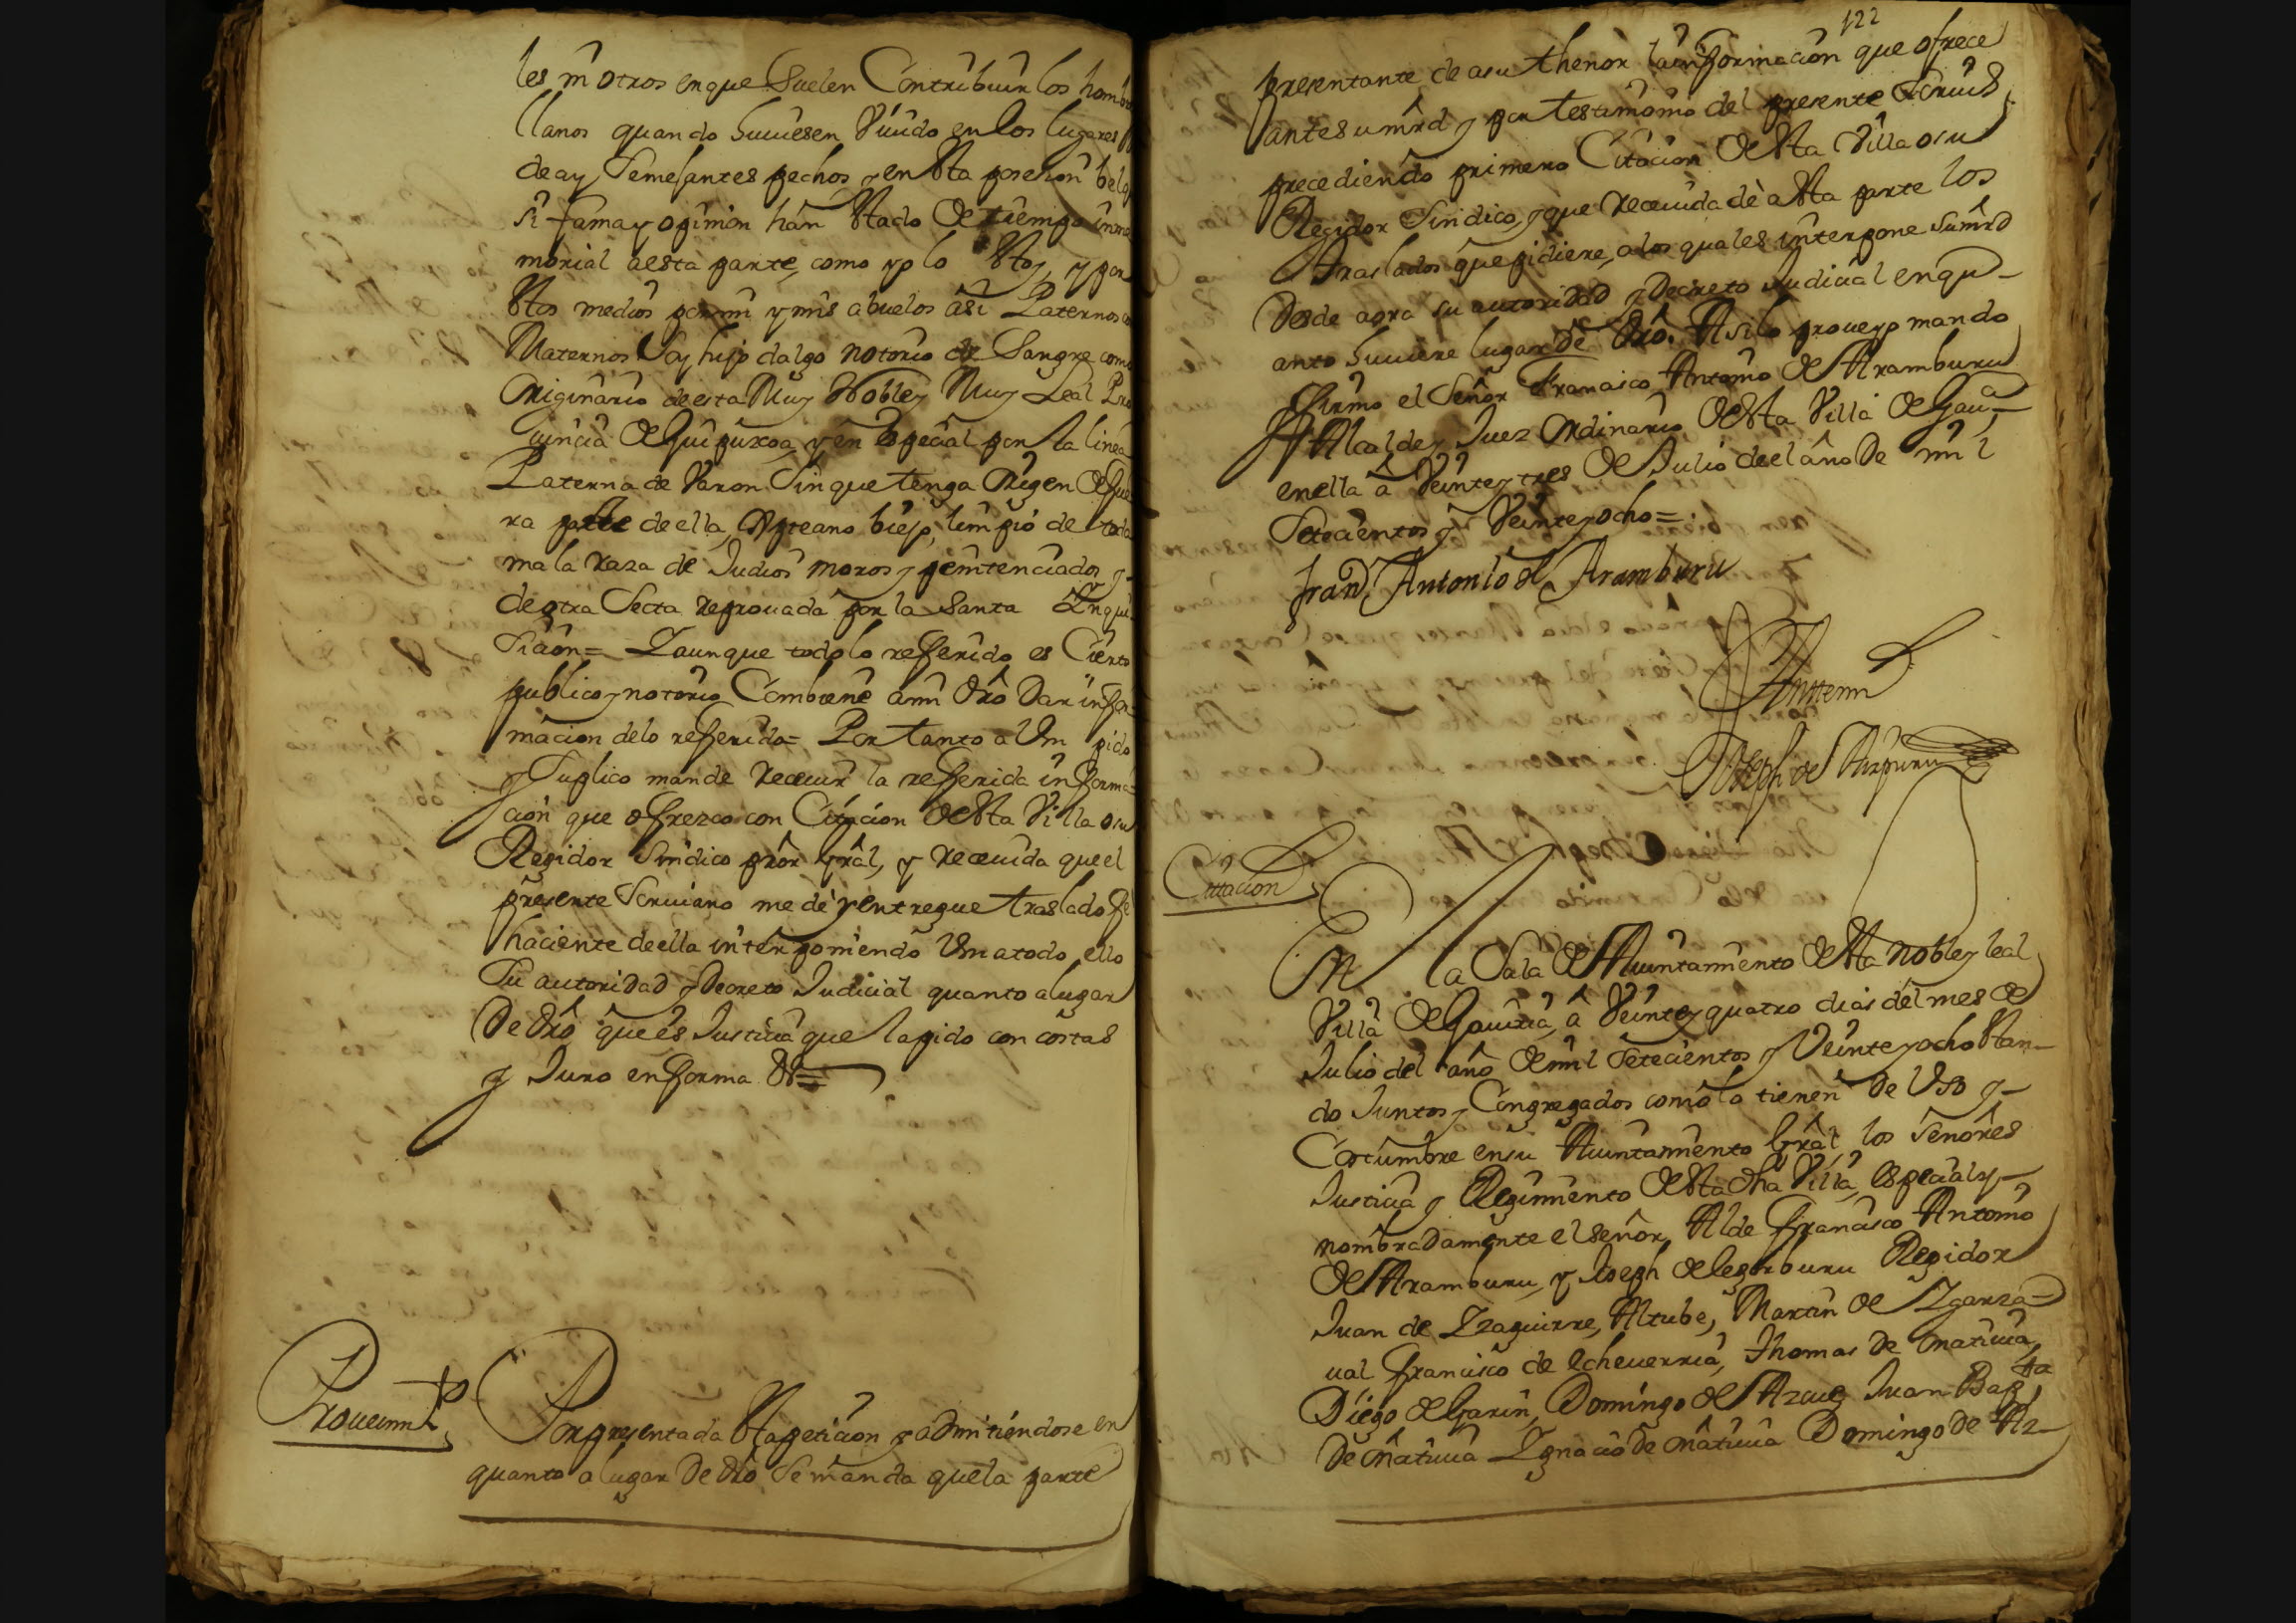 les ni otros en que Suelen Contribuir los hombres
llanos quando huuiesen Viuido en los lugares
de ay Semejantes pechos y en Sta posesion bel q
si fama y opinion han Stado de tiempo inme
morial a esta parte, como yo lo Stoy, y por
Stos medios por mi y mis abuelos asi Paternos co
Maternos Soy hijo dalgo notorio de Sangre como
Originario de esta Muy Noble y Muy Leal Pro
uincia de Guipuzcoa, y en Special por la linea
Paterna de Varon Sin que tenga Origen de fue
ra parte de ella, Xpteano biejo, limpio de toda
mala raza de Judios moros y penitenciados y
de otra Secta reprouada por la Santa Inqui
Sicion = Y aunque todo lo referido es Cierto
publico y notorio Combiene a mi dro Dar infor
macion de lo referido = Por tanto a Vm pido
y Suplico mande receuir la referida informa
cion que ofrezco con Citacion de Sta Villa o su
Regidor Sindico prõr grâl, y receuida que el
presente Scriuano me dè y entregue traslado fe
haciente de ella interponiendo Vm a todo ello
Su autoridad y Decreto Judicial quanto a lugar
De dro que es Justicia que la pido con costas
y Juro en forma &=
Proueimto
Por presentada Sta peticion y admitiendose en
quanto a lugar De dro Se manda que la parte
122
presentante de a su thenor la informacion que ofrece
ante su mrd y por testimonio del presente Scriuo
precediendo primero Citacion de Sta Villa o su
Regidor Sindico, y que receuida dè a Sta parte los
traslados que pidiere, a los quales interpone Su mrd
Desde aora su autoridad y Decreto Judicial en qu-
anto huuiere lugar de dro. Asi lo proueyo mando
y firmo el Señor Francisco Antonio de Aramburu
Alcalde y Juez Ordinario de Sta Villa de Gauia
en ella à Veinte y tres de Julio de el año De mil
Setecientos y Veinte y ocho =
Frando Antonio de Aramburu
Ante mi
Joseph de Aizpuru
Citacion
En la Sala de Aiuntamiento de Sta noble y leal
Villa de Gauiria, â Veinte y quatro dias del mes de
Julio del año de mil Setecientos y Veinte y ocho Stan-
do Juntos y Congregados como lo tienen De Vso y
Costumbre en su Aiuntamiento Gral los Señores
Justicia y Regimiento de Sta dha Villa, especial y
nombradamente el señor Alde Francisco Antonio
de Aramburu, y Joseph de legorburu Regidor
Juan de Yzaguirre, Altube, Martin de Ygarza=
ual Francisco de echeuerria, Thomas De Onatiuia,
Diego de Garin, Domingo de Azcue Juan Bapta
De Onatiuia Ygnacio De Onatiuia Domingo de Az-